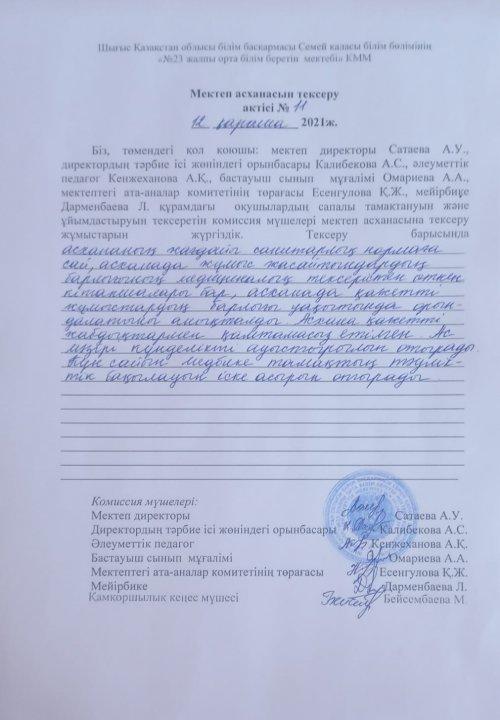 Шығыс Қазақстан облысы білім басқармасы Семей қаласы білім бөлімінің
«№23 жалпы орта білім беретін мектебі» КММ
Мектеп асханасын тексеру
актісі № 11
12 қараша 2021ж.
Біз, төмендегі қол қоюшы: мектеп директоры Сатаева А.У.,
директордың тәрбие ісі жөніндегі орынбасары Калибекова А.С., әлеуметтік
педагог Кенжеханова А.Қ., бастауыш сынып мұғалімі Омариева А.А.,
мектептегі ата-аналар комитетінің төрағасы Есенгулова Қ.Ж., мейірбике
Дарменбаева Л. құрамдағы оқушылардың сапалы тамақтануын және
ұйымдастыруын тексеретін комиссия мүшелері мектеп асханасына тексеру
жұмыстарын жүргіздік. Тексеру барысында
асхананың жағдайы санитарлық нормаға
сай, асханада жұмыс жасайтындардың
барлығының медициналық тексерілген өткен
кітапшалары бар, асханада қажетті
жұмыстардың барлығы уақытында орын-
далатыны анықталды. Асхана қажетті
жабдықтармен қамтамасыз етілген. Ас
мәзірі күнделікті ауыстырылып отырады.
Күн сайын медбике тамақтың тәулік-
тік бақылауын іске асырып отырады.
Комиссия мүшелері:
Мектеп директоры Сатаева А.У.
Директордың тәрбие ісі жөніндегі орынбасары Калибекова А.С.
Әлеуметтік педагог Кенжеханова А.Қ.
Бастауыш сынып мұғалімі Омариева А.А.
Мектептегі ата-аналар комитетінің төрағасы Есенгулова Қ.Ж.
Мейірбике Дарменбаева Л.
Қамқоршылық кеңес мүшесі Бейсембаева М.